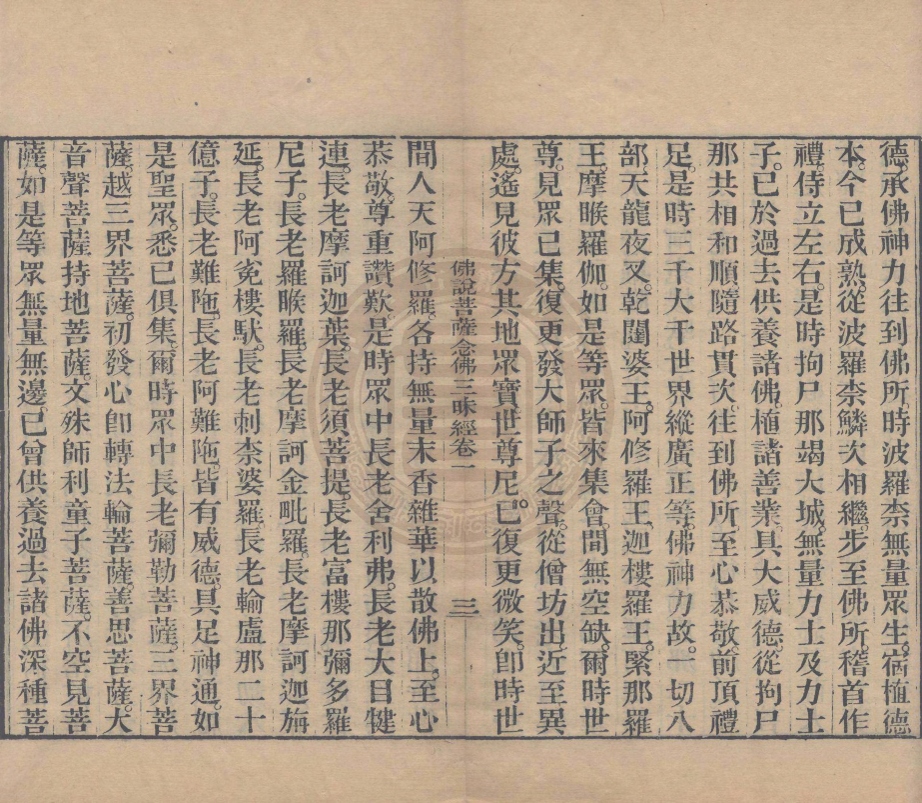 德。承佛神力往到佛所。時波羅柰無量眾生。宿植德
本。今已成熟。從波羅柰鱗次相繼。步至佛所。稽首作
禮。侍立左右。是時拘尸那竭大城。無量力士及力士
子。已於過去供養諸佛。植諸善業。具大威德。從拘尸
那共相和順。隨路貫次。往到佛所。至心恭敬。前頂禮
足。是時三千大千世界縱廣正等。佛神力故。一切八
部天龍夜叉。乾闥婆王。阿修羅王。迦樓羅王。緊那羅
王。摩睺羅伽。如是等眾。皆來集會。間無空缺。爾時世
尊。見眾已集。復更發大師子之聲。從僧坊出。近至異
處。遙見彼方其地眾寶。世尊尼已。復更微笑。即時世
佛說菩薩念佛三昧經卷一 三
間人天阿修羅。各持無量末香雜華以散佛上。至心
恭敬。尊重讚歎。是時眾中長老舍利弗。長老大目犍
連。長老摩訶迦葉。長老須菩提。長老富樓那彌多羅
尼子。長老羅睺羅。長老摩訶金毗羅。長老摩訶迦旃
延。長老阿㝹樓馱。長老刺柰婆羅。長老輸盧那二十
億子。長老難陁。長老阿難陁。皆有威德具足神通。如
是聖眾。悉已俱集。爾時眾中長老彌勒菩薩。三界菩
薩。越三界菩薩。初發心即轉法輪菩薩。善思菩薩。大
音聲菩薩。持地菩薩。文殊師利童子菩薩。不空見菩
薩。如是等眾無量無邊。已曾供養過去諸佛。深種菩